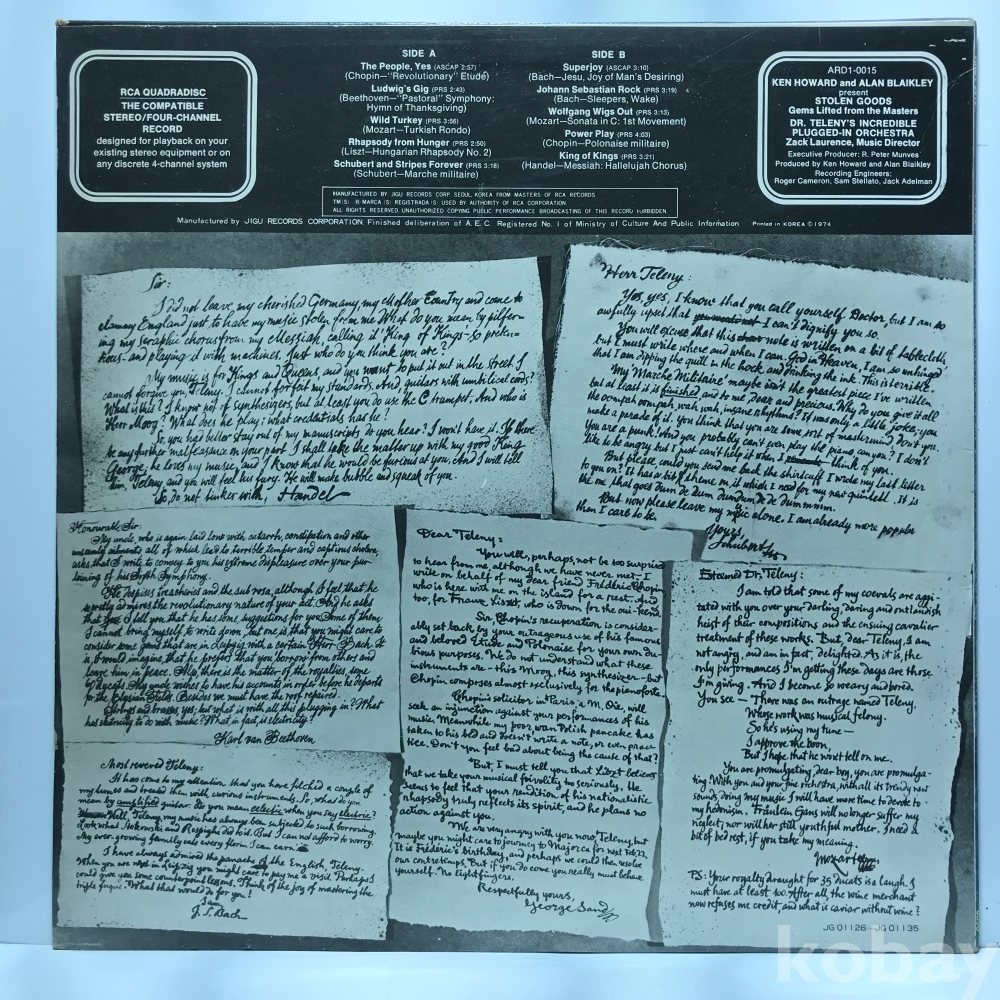 RCA QUADRADISC
THE COMPATIBLE
STEREO/FOUR-CHANNEL
RECORD
designed for playback on your
existing stereo equipment or on
any discrete 4-channel system
SIDE A
The People, Yes (ASCAP 2:57)
(Chopin—"Revolutionary" Etude)
Ludwig's Gig (PRS 2:43)
(Beethoven—"Pastoral" Symphony:
Hymn of Thanksgiving)
Wild Turkey (PRS 3:56)
(Mozart—Turkish Rondo)
Rhapsody from Hunger (PRS 2:50)
(Liszt—Hungarian Rhapsody No. 2)
Schubert and Stripes Forever (PRS 3:18)
(Schubert—Marche militaire)
SIDE B
Superjoy (ASCAP 3:10)
(Bach—Jesu, Joy of Man's Desiring)
Johann Sebastian Rock (PRS 3:19)
(Bach—Sleepers, Wake)
Wolfgang Wigs Out (PRS 3:13)
(Mozart—Sonata in C: 1st Movement)
Power Play (PRS 4:03)
(Chopin—Polonaise militaire)
King of Kings (PRS 3:21)
(Handel—Messiah: Hallelujah Chorus)
ARD1-0015
KEN HOWARD and ALAN BLAIKLEY
present
STOLEN GOODS
Gems Lifted from the Masters
DR. TELENY'S INCREDIBLE
PLUGGED-IN ORCHESTRA
Zack Laurence, Music Director
Executive Producer: R. Peter Munves
Produced by Ken Howard and Alan Blaikley
Recording Engineers:
Roger Cameron, Sam Stellato, Jack Adelman
MANUFACTURED BY JIGU RECORDS CORP. SEOUL KOREA FROM MASTERS OF RCA RECORDS
TM(S) ® MARCA(S) REGISTRADA(S) USED BY AUTHORITY OF RCA CORPORATION
ALL RIGHTS RESERVED UNAUTHORIZED COPYING PUBLIC PERFORMANCE BROADCASTING OF THIS RECORD FORBIDDEN
Manufactured by JIGU RECORDS CORPORATION. Finished deliberation of A.E.C. Registered No. 1 of Ministry of Culture And Public Information Printed in KOREA © 1974
Sir:
I did not leave my cherished Germany, my Mother Country and come to
clammy England just to have my music stolen from me. What do you mean by pilfer-
ing my seraphic chorus from my Messiah, calling it "King of Kings"—so preten-
tious—and playing it with machines. Just who do you think you are?
My music is for Kings and Queens, and you want to put it out in the street. I
cannot forgive you, Teleny. I cannot forfeit my standards. And guitars with umbilical cords?
What is this? I know not of synthesizers, but at least you do use the C trumpet. And who is
Herr Moog? What does he play; what credentials has he?
So, you had better stay out of my manuscripts do you hear? I won't have it. If there
be any further malfeasance on your part I shall take the matter up with my good King
George, he loves my music, and I know that he would be furious at you. And I will tell
Teleny and you will feel his fury. He will make bubble and squeak of you.
So do not tinker with, Handel
Herr Teleny:
Yes, yes, I know that you call yourself Doctor, but I am so
awfully upset that I can't dignify you so.
You will excuse that this note is written on a bit of tablecloth,
but I must write where and when I can. God in Heaven, I am so unhinged
that I am dipping the quill in the hock and drinking the ink. This is terrible.
My 'Marche Militaire' maybe isn't the greatest piece I've written
but at least it is finished, and to me, dear and precious. Why do you give it all
the oompah oompah, wah wah, insane rhythms? It was only a little joke; you
make a parade of it. You think that you are some sort of mastermind don't you.
You are a punk. And you probably can't even play the piano can you? I don't
like to be angry but I just can't help it when I think of you.
But please, could you send me back the shirtcuff I wrote my last letter
to you on? It has a bit of theme on it which I need for my new quintet. It is
the one that goes Dum de Dum Dumdum de de Dummmm.
But now please leave my music alone. I am already more popular
than I care to be.
Yours,
Schubert
Honourable Sir:
My uncle, who is again laid low with catarrh, constipation and other
ailments all of which lead to terrible temper and captious choler,
asks that I write to convey to you his extreme displeasure over your pur-
loining of his Sixth Symphony.
He despises treacheries and the sub rosa, although I feel that he
secretly admires the revolutionary nature of your act. And he asks
that I tell you that he has some suggestions for you. Some of them
I cannot bring myself to write down, but one is that you might care to
consider some good that are in Leipzig with a certain Herr Bach. It
is, I would imagine, that he prefers that you borrow from others and
leave him in peace. Also, there is the matter of the royalties, some
My uncle wishes to have his accounts in order before he departs
for the Elysian Fields. Besides we must have the roof repaired.
Strings and brasses, yes, but what is with all this plugging in? What
has electricity to do with music? What in fact, is electricity?
Karl van Beethoven
Dear Teleny:
You will, perhaps, not be too surprised
to hear from me, although we have never met. I
write on behalf of my dear friend Frédéric Chopin
who is here with me on the island for a rest. And
too, for Franz Liszt, who is down for the oui-kend.
Sir, Chopin's recuperation is consider-
ally set back by your outrageous use of his famous
and beloved Etude and Polonaise for your own du-
bious purposes. We do not understand what these
instruments are—this Moog, this synthesizer—but
Chopin composes almost exclusively for the pianoforte.
Chopin's solicitor in Paris, a M. Oie, will
seek an injunction against your performances of his
music. Meanwhile my poor, wan Polish pancake has
taken to his bed and doesn't write a note, or even prac-
tice. Don't you feel bad about being the cause of that?
But, I must tell you that Liszt believes
that we take your musical frivolity too seriously. He
seems to feel that your rendition of his nationalistic
rhapsody truly reflects its spirit, and he plans no
action against you.
We are very angry with you now, Teleny, but
maybe you might care to journey to Majorca for next Feb. 22.
It is Frédéric's birthday, and perhaps we could then resolve
our contretemps. But if you do come you really must behave
yourself. No light fingers.
Respectfully yours,
George Sand
Esteemed Dr. Teleny:
I am told that some of my coevals are agi-
tated with you over your darling, daring and outlandish
heist of their compositions and the ensuing cavalier
treatment of these works. But, dear Teleny, I am
not angry, and am in fact, delighted. As it is, the
only performances I'm getting these days are those
I'm giving. And I become so weary and bored.
You see — There was an outrage named Teleny.
Whose work was musical felony.
So he's using my tune —
I approve the boon,
But I hope that he won't tell on me.
You are promulgating dear boy, you are promulga-
ting. With you and your fine orchestra, with all its trendy new
sounds, doing my music I will have more time to devote to
my hedonism. Fräulein Gans will no longer suffer my
neglect; nor will her still youthful mother. I need a
bit of bed rest, if you take my meaning.
Mozart
P.S: Your royalty draught for 35 ducats is a laugh. I
must have at least 100. After all, the wine merchant
now refuses me credit, and what is caviar without wine?
Most revered Teleny:
It has come to my attention, that you have filched a couple of
my tunes and treated them with curious instruments. So, what do you
mean by amplified guitar. Do you mean eclectic when you say electric?
Well, Teleny, my music has always been subjected to such borrowing.
Look what Stokowski and Respighi did to it. But I can not afford to worry.
My ever-growing family eats every florin I can earn.
I have always admired the panache of the English, Teleny.
When you are next in Leipzig you might care to pay me a visit. Perhaps I
could give you some counterpoint lessons. Think of the joy of mastering the
triple fugue. What that would do for you!
I am
J. S. Bach
JG01126–JG01135
kobay